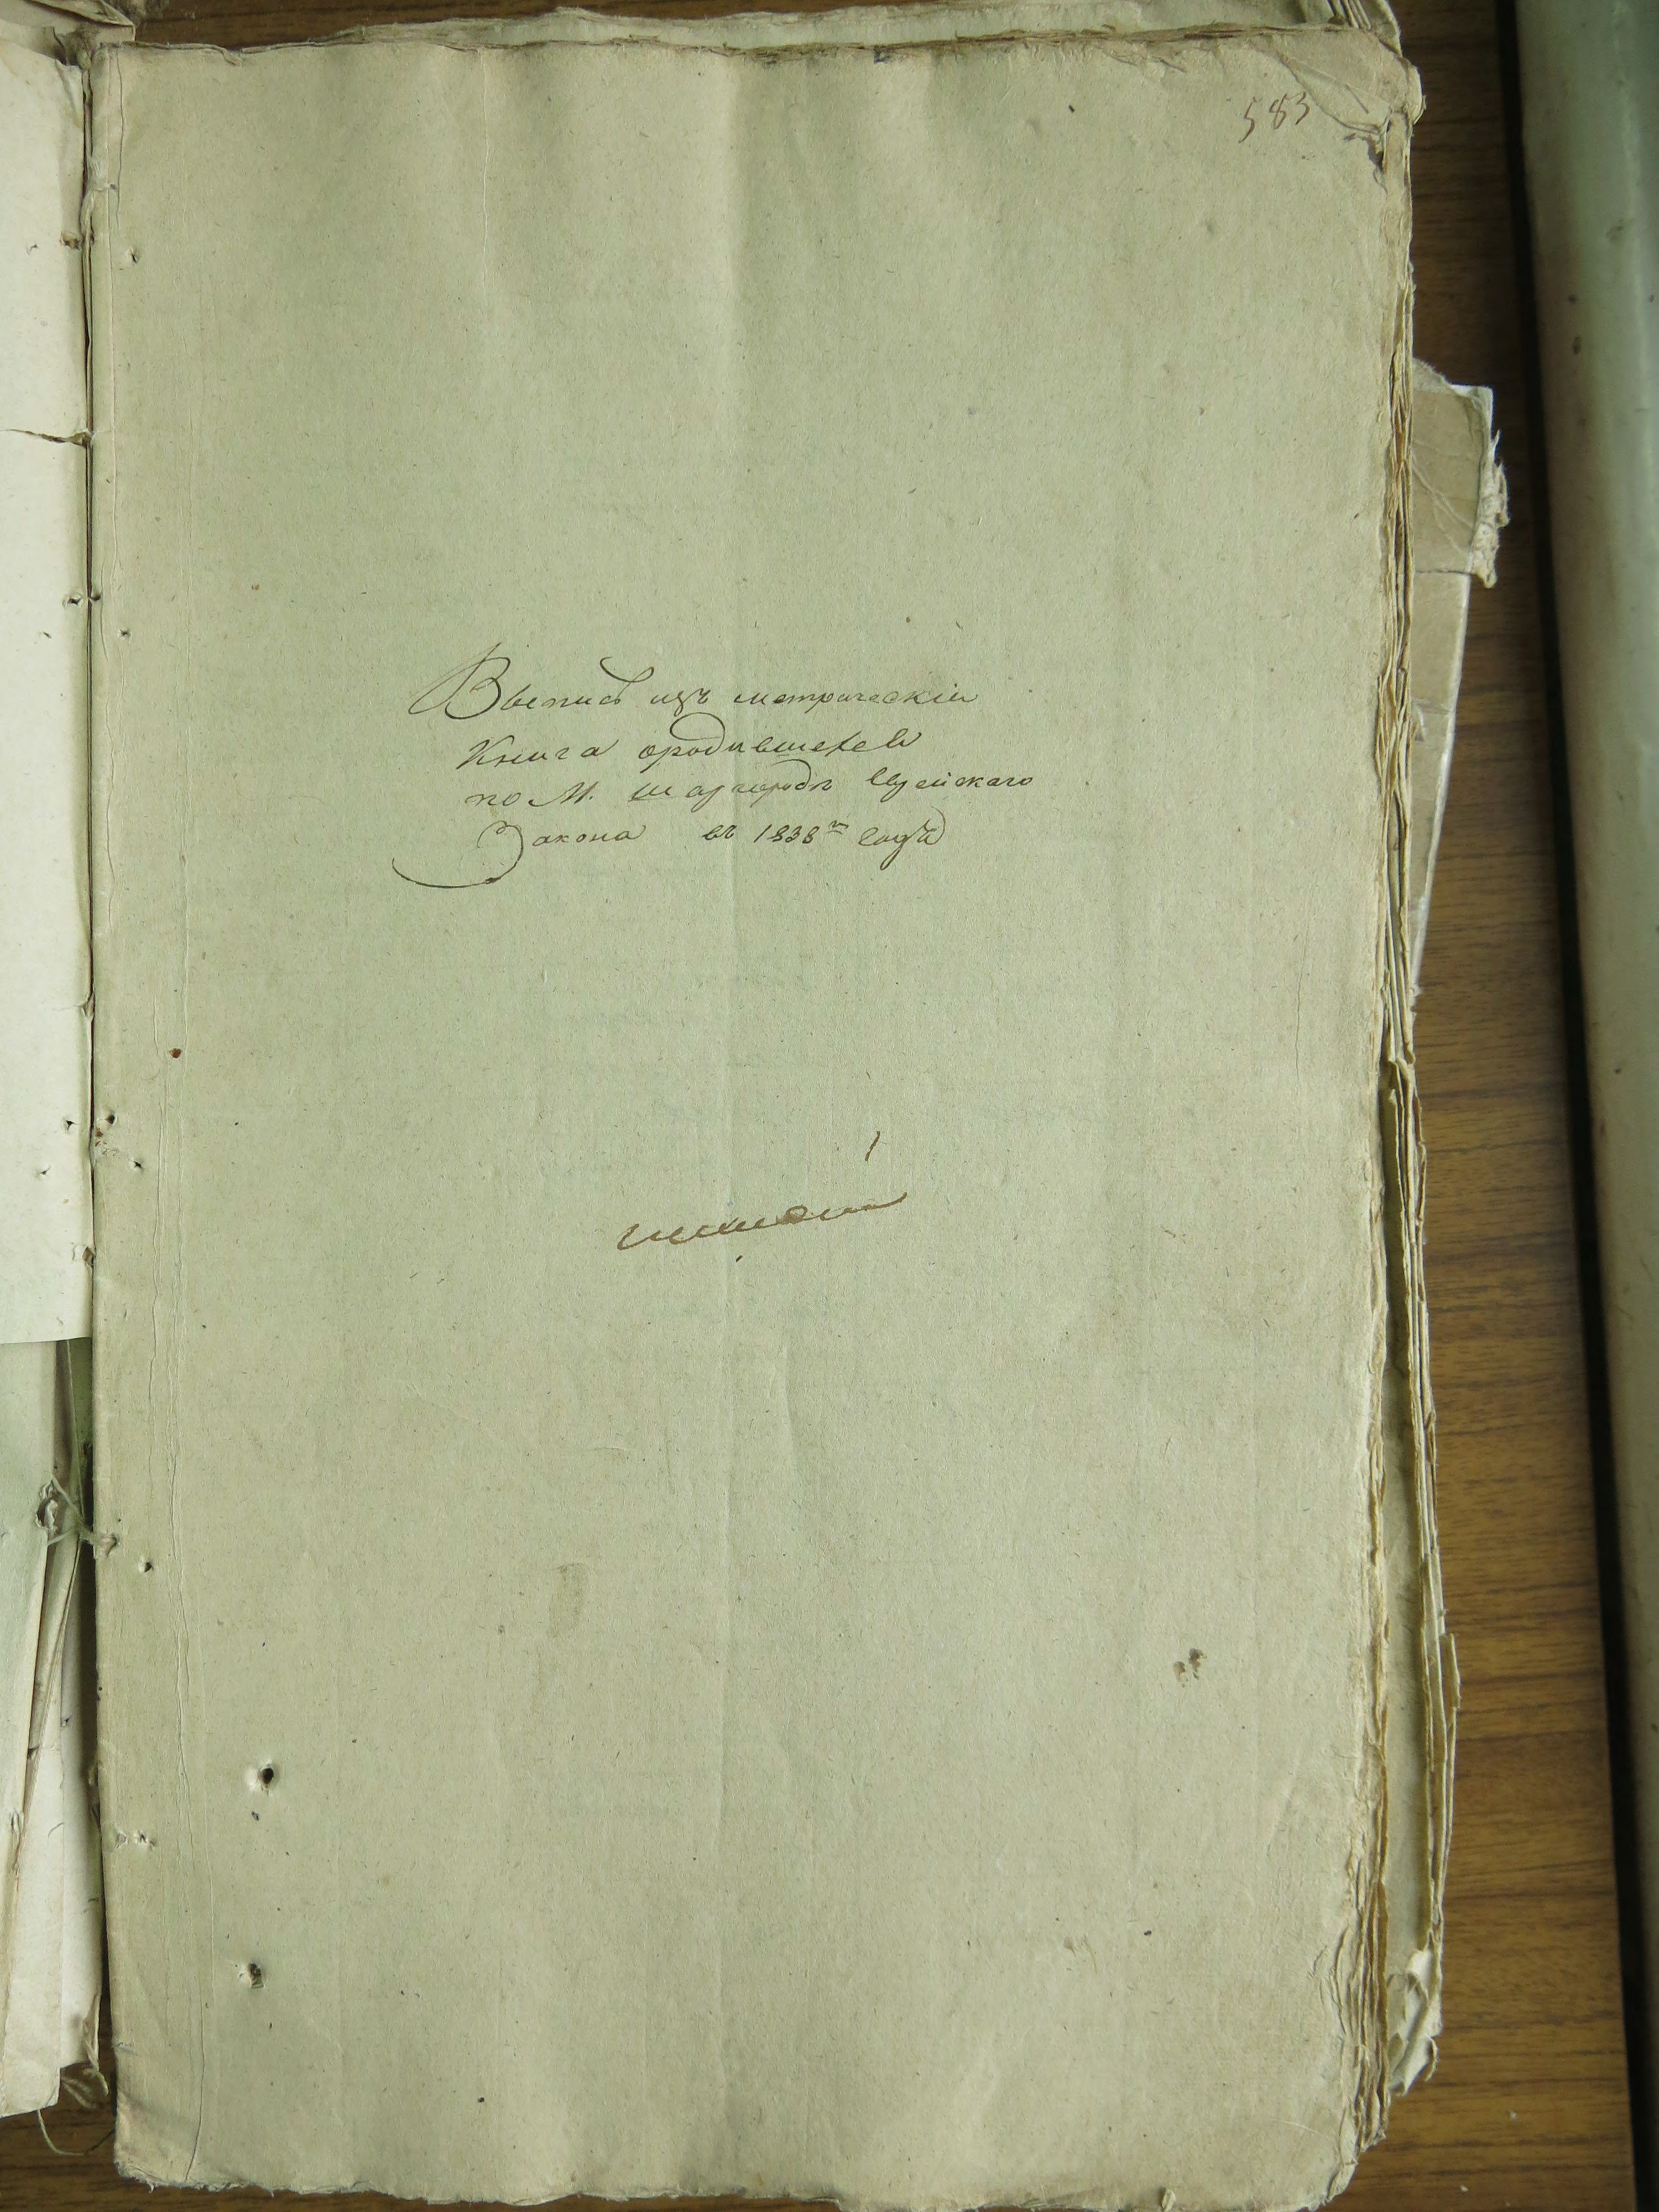 583
Выпись изъ метрическіи
Книга ородившехся
по М. шаргородъ Еврейскаго
Закона въ 1838м году